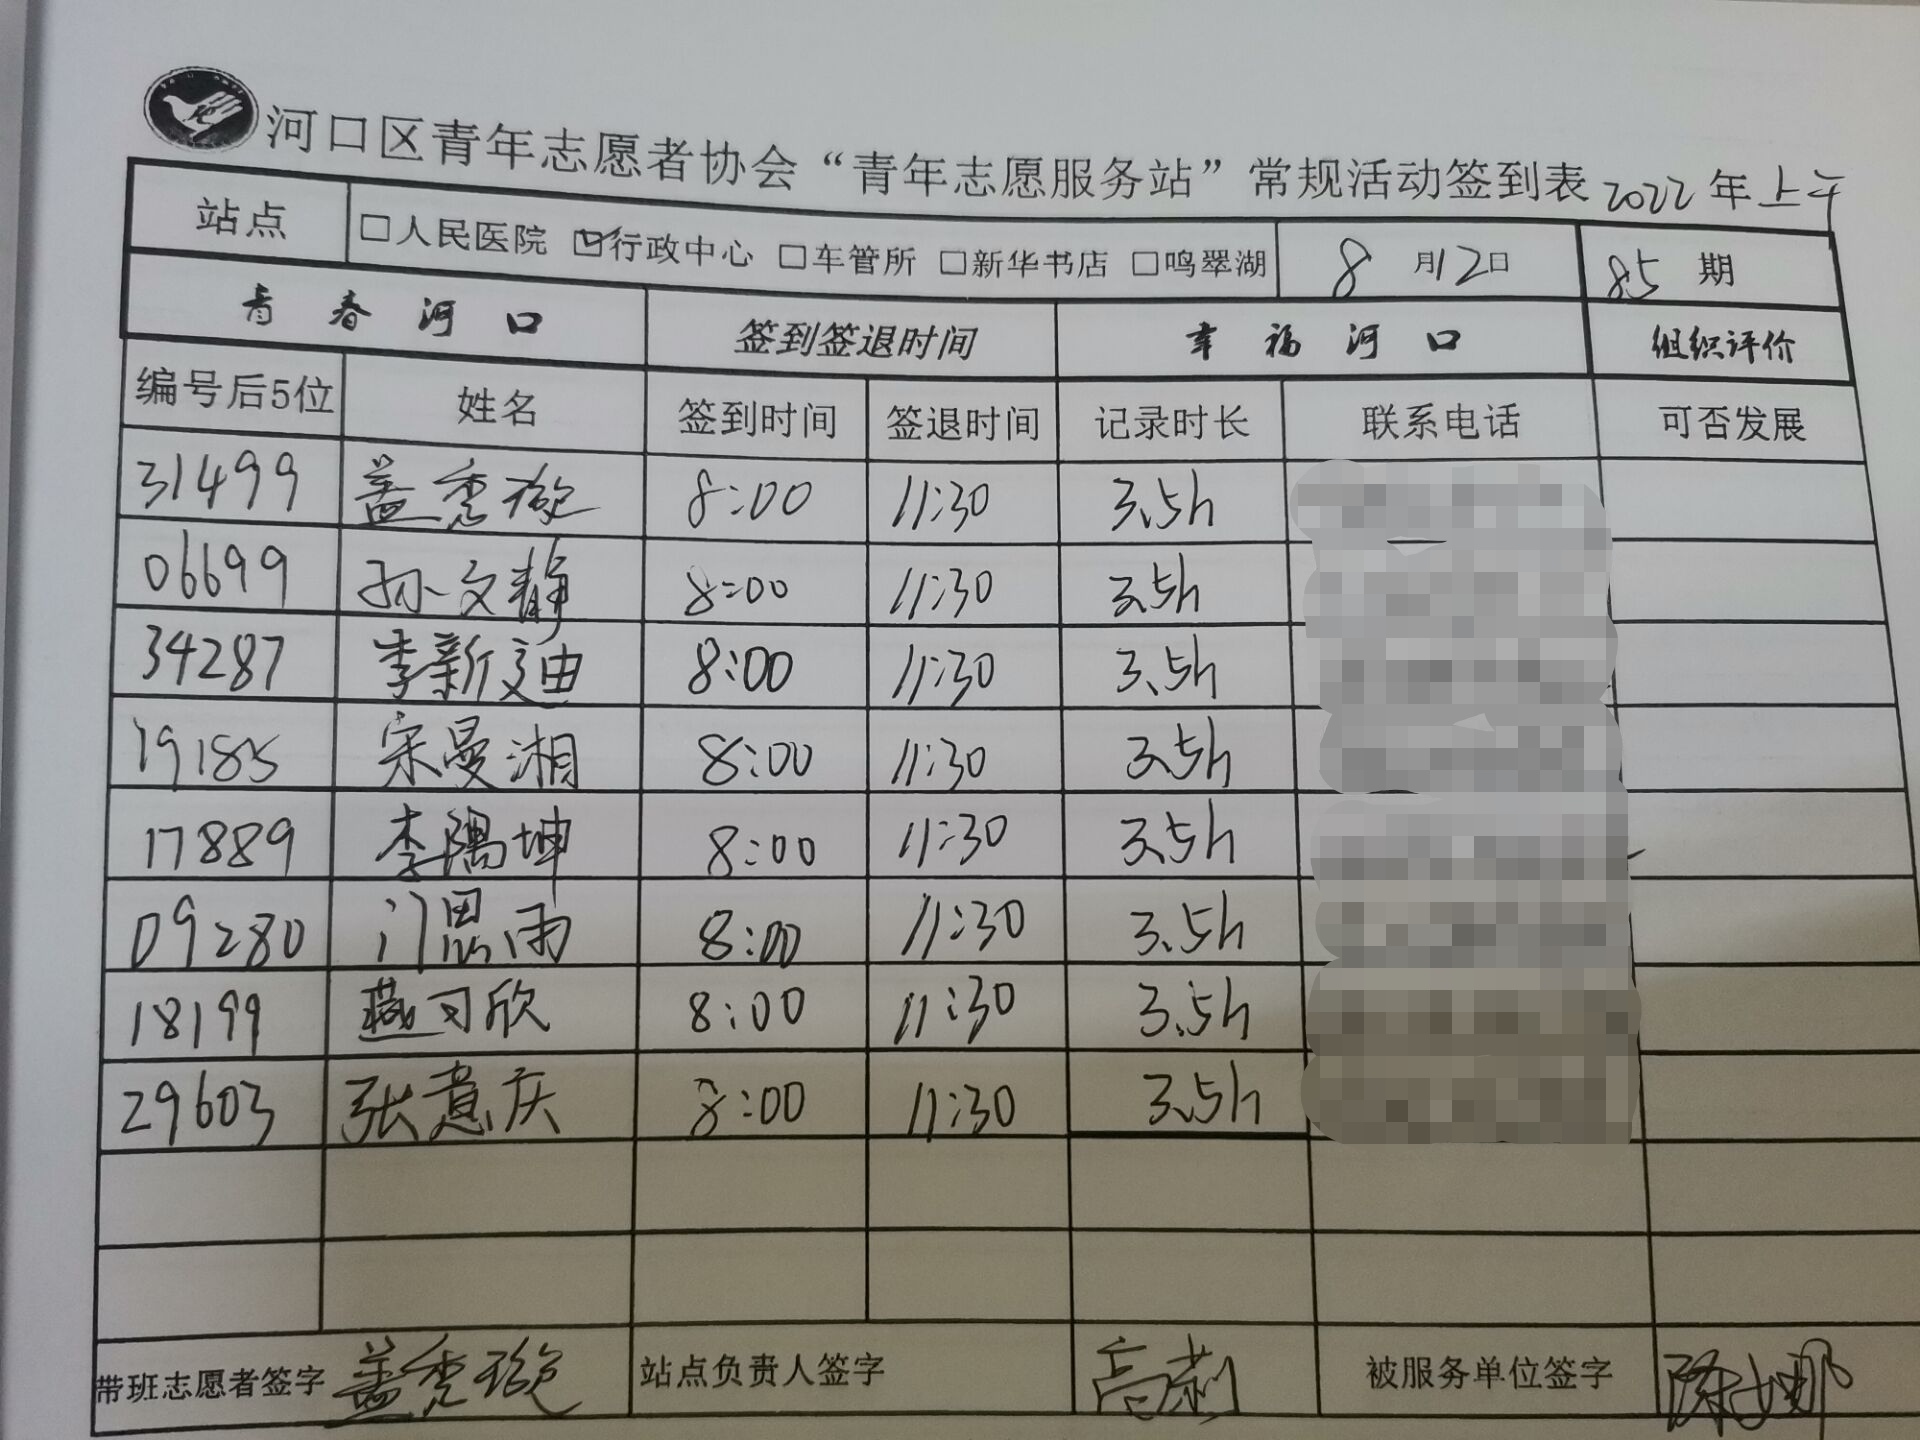 河口区青年志愿者协会“青年志愿服务站”常规活动签到表 2022年上午
站点 □人民医院 ☑行政中心 □车管所 □新华书店 □鸣翠湖 8月12日 85期
青春河口 签到签退时间 幸福河口 组织评价
编号后5位 姓名 签到时间 签退时间 记录时长 联系电话 可否发展
31499 盖秀 8:00 11:30 3.5h
06699 孙文静 8:00 11:30 3.5h
34287 李新迪 8:00 11:30 3.5h
19185 宋曼湘 8:00 11:30 3.5h
17889 李隅坤 8:00 11:30 3.5h
09280 门思雨 8:00 11:30 3.5h
18199 燕可欣 8:00 11:30 3.5h
29603 张意庆 8:00 11:30 3.5h
带班志愿者签字 盖秀 站点负责人签字 高莉 被服务单位签字 陈娜